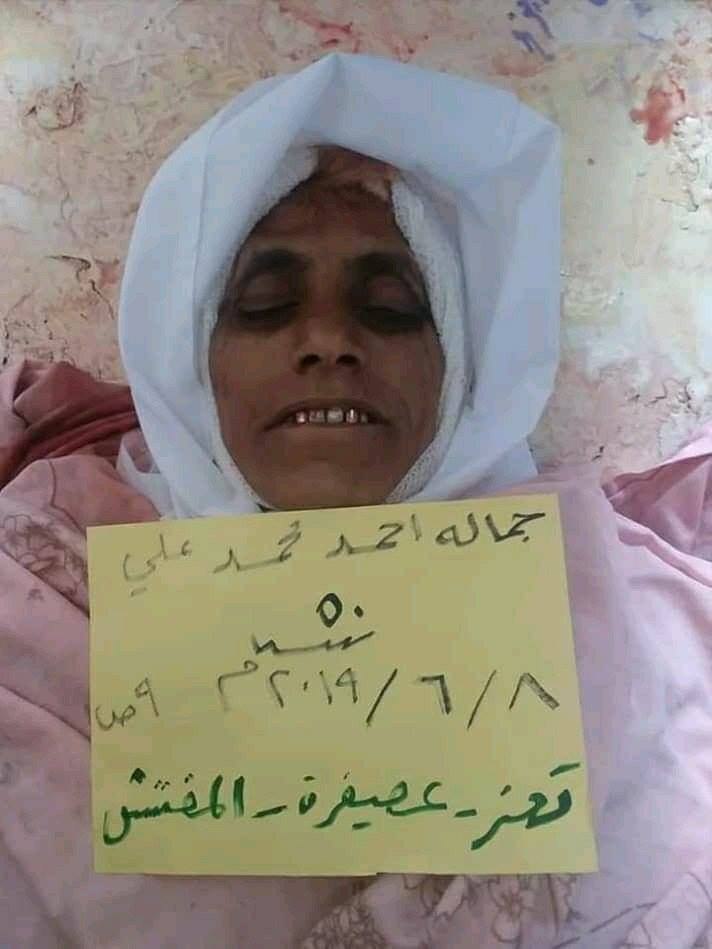 جماله احمد محمد علي
٥٠
سنه
٨/٦/٢٠١٩م ٩ص
تعز - عصيفرة - المفتش